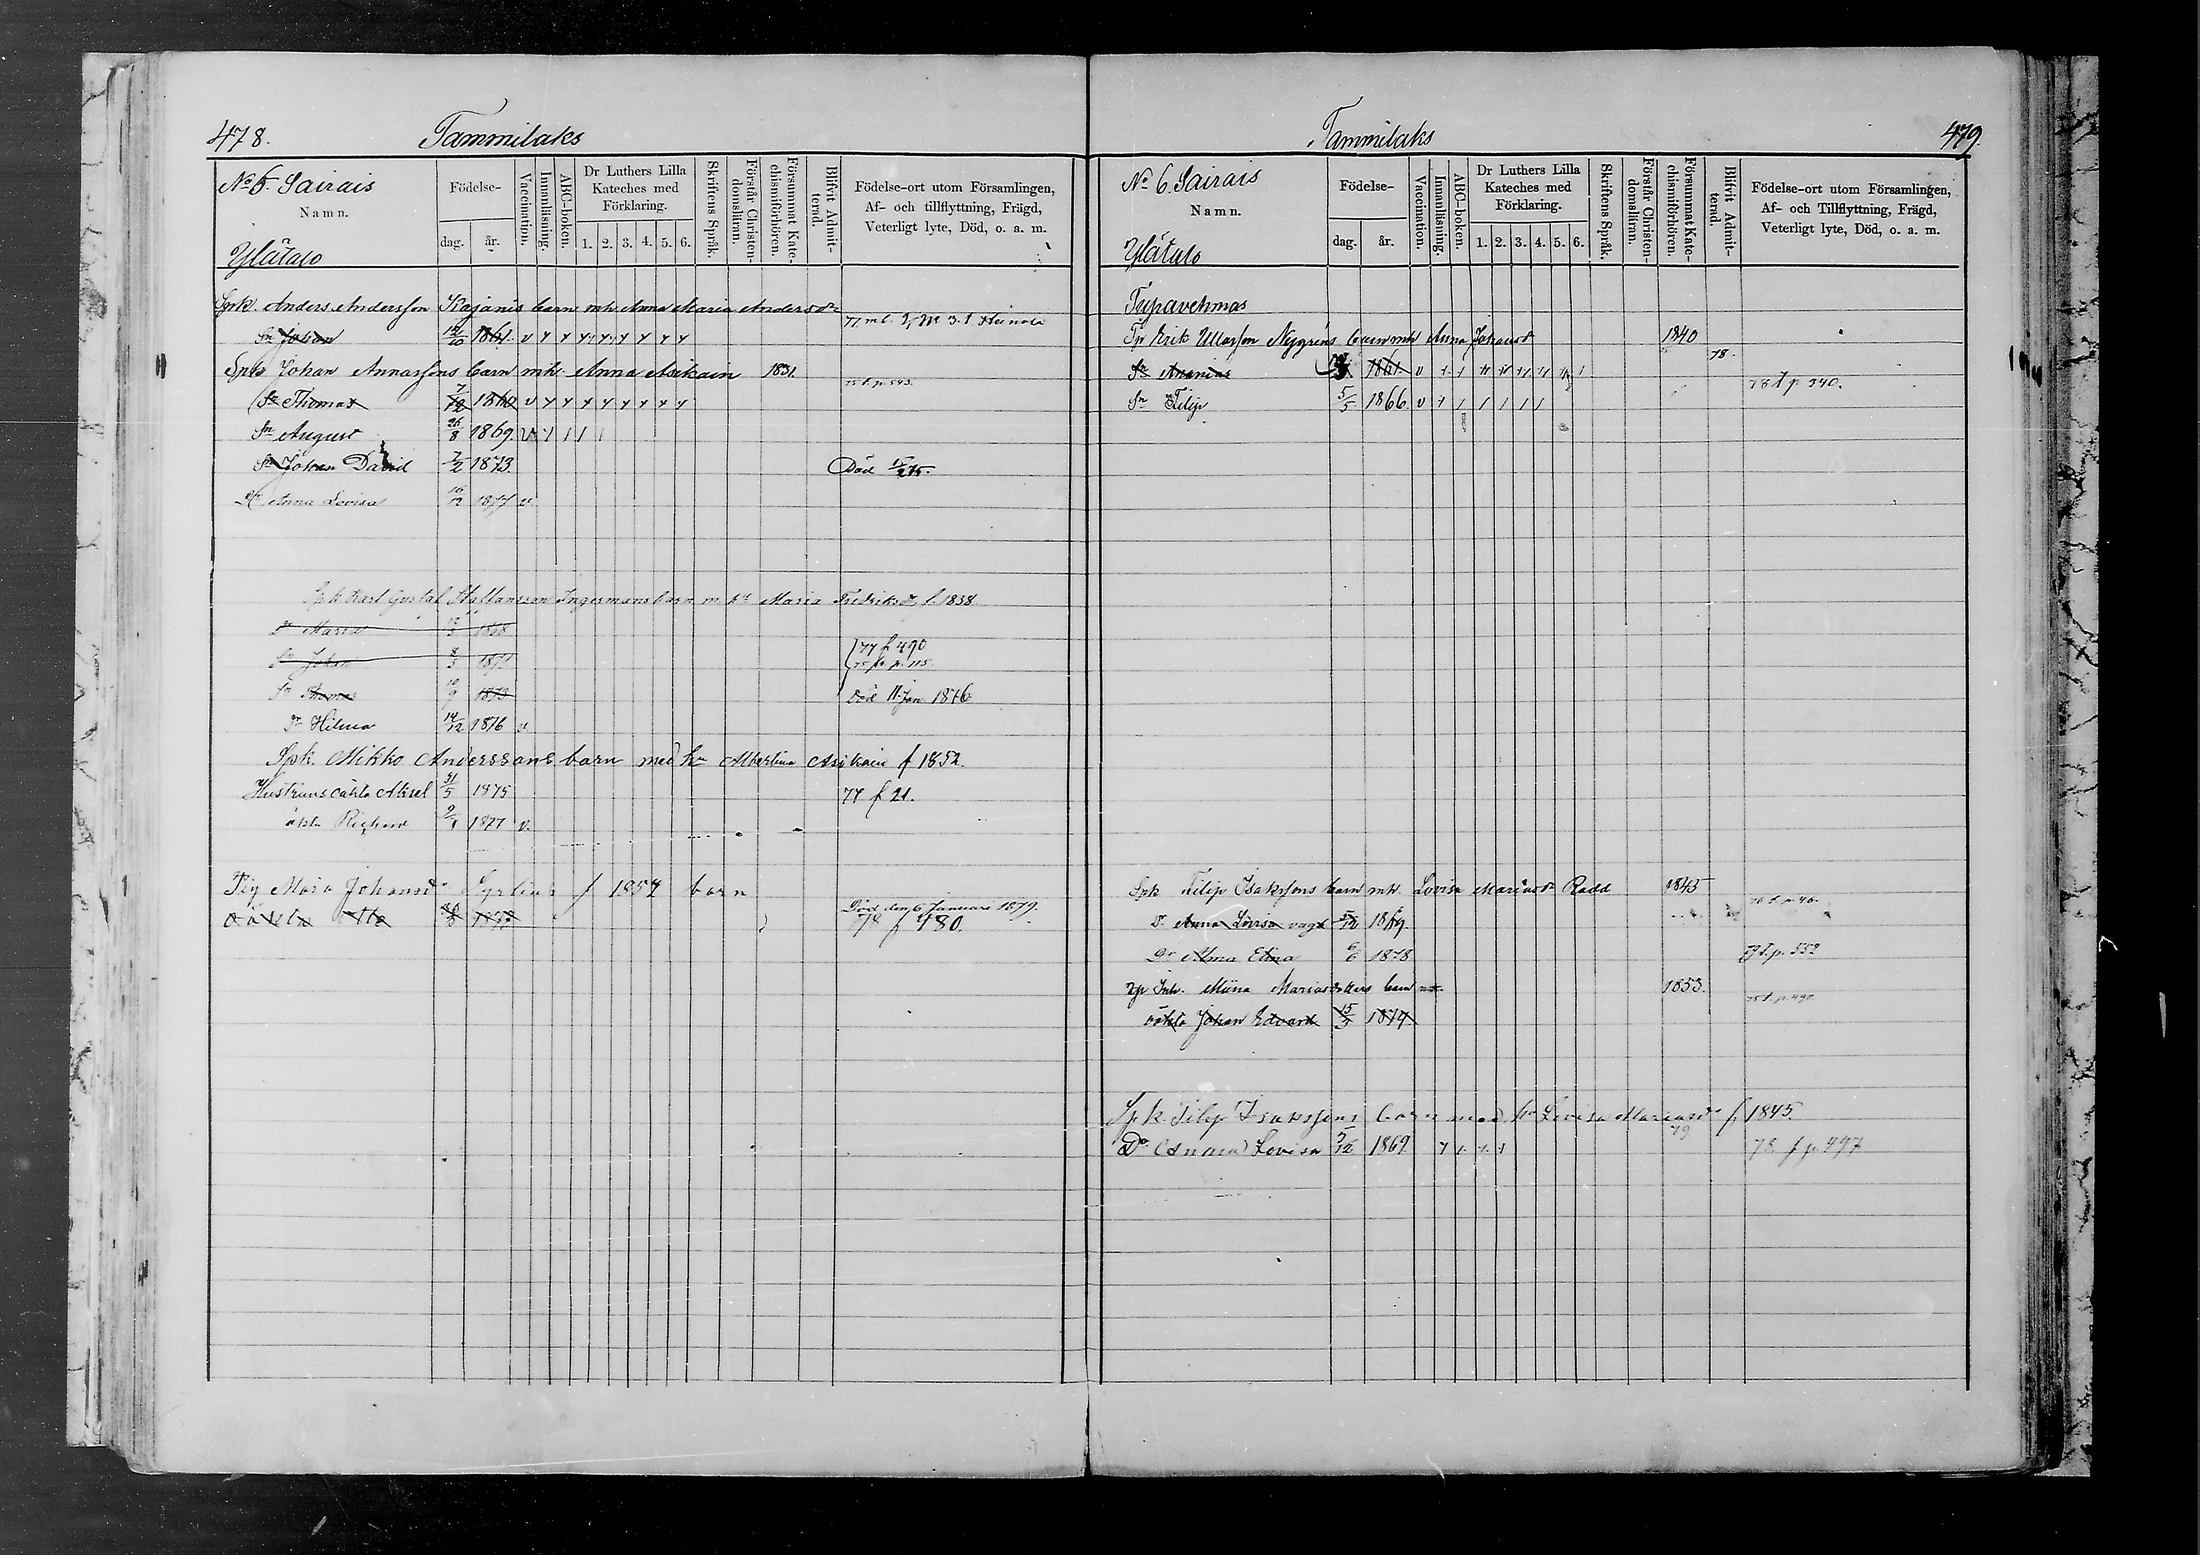 478. Tammilaks
No 6. Sairais
Namn.
Ylätalo
Födelse-
dag. år.
Vaccination.
Innanläsning.
ABC-boken.
Dr Luthers Lilla Kateches med Förklaring.
1. 2. 3. 4. 5. 6.
Skriftens Språk.
Förstår Christen-domsläran.
Försummat Kate-chismiförhören.
Blifvit Admit-terad.
Födelse-ort utom Församlingen,
Af- och tillflyttning, Frägd,
Veterligt lyte, Död, o. a. m.
Spk. Anders Andersson Kajanis barn mh Anna Maria Andersdr
Sn Johan 10 1861. v
Spk Johan Annassons barn mh. Anna Asikain 1831.
75 t. p. 543.
Sn Thomas 7/12 1860 v
Sn August 26/8 1869. v
Sn Johan David 7/2 1873. Död
Dr Anna Lovisa 16/12 1877 v.
Spk Karl Gustaf Staffansson Ingermans barn m hu Maria Fredriksdr f. 1838
Dr Maria 1868
Sn Johan 8/5 1871 77 f 490
Sn Thomas 10/9 1873 Död 11 Jan 1876
Dr Hilma 14/12 1876 v.
Spk. Mikko Anderssons barn med hu Albertina Asikain f 1852.
Hustruns oäkta Aksel 31/5 1875 77 f 21.
äkta Richard 1877 v.
Pig Maria Johansdr f 1854 barn
oäkta Otto 1878 Död den 6 Januari 1879.
78 f 480.
Tammilaks 479.
No 6. Sairais
Namn.
Ylätalo
Födelse-
dag. år.
Vaccination.
Innanläsning.
ABC-boken.
Dr Luthers Lilla Kateches med Förklaring.
1. 2. 3. 4. 5. 6.
Skriftens Språk.
Förstår Christen-domsläran.
Försummat Kate-chismiförhören.
Blifvit Admit-terad.
Födelse-ort utom Församlingen,
Af- och Tillflyttning, Frägd,
Veterligt lyte, Död, o. a. m.
Erik Ullasson Nygréns barn mh Anna Johansdr 1840
78.
Sn Ananias 1861. v 78 f p 340.
Sn Filip 5/5 1866. v
Spk Filip Isakssons barn mh. Lovisa Mariasdr Radd 1845
76 t. p. 46.
Dr Anna Lovisa 5/12 1869.
Dr Alma Edna 6/6 1878 p. 552
Inh. Miina Mariasdotters barn 1853.
75 t. p. 490
oäkta Johan Edvard 15/3 1874.
Spk. Filip Isakssons barn med hu Lovisa Mariasdr f 1845
79
Dr (Anna) Lovisa 5/12 1869 78 f p. 497